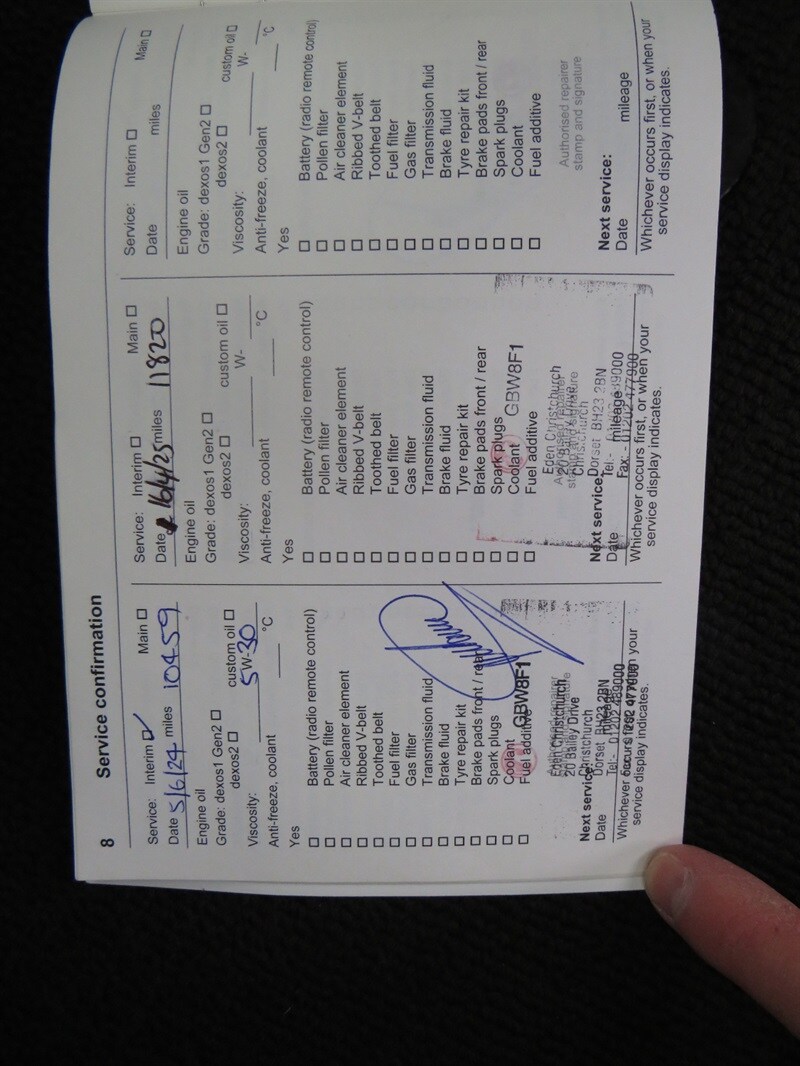 8
Service confirmation
Service: Interim ☑ Main ☐
Date 5/6/24 miles 10459
Engine oil
Grade: dexos1 Gen2 ☐
dexos2 ☐ custom oil ☐
Viscosity: 5W-30
Anti-freeze, coolant °C
Yes
☐ Battery (radio remote control)
☐ Pollen filter
☐ Air cleaner element
☐ Ribbed V-belt
☐ Toothed belt
☐ Fuel filter
☐ Gas filter
☐ Transmission fluid
☐ Brake fluid
☐ Tyre repair kit
☐ Brake pads front / rear
☐ Spark plugs
☐ Coolant
GBW8F1
☐ Fuel additive
Eden Christchurch
20 Bailey Drive
Christchurch
Next service:
Dorset BH23 2BN
Date
Tel:- 01202 489000
Whichever occurs first, or when your
service display indicates.
Service: Interim ☐ Main ☐
Date 16/4/25 miles 11820
Engine oil
Grade: dexos1 Gen2 ☐
dexos2 ☐ custom oil ☐
Viscosity: W-
Anti-freeze, coolant °C
Yes
☐ Battery (radio remote control)
☐ Pollen filter
☐ Air cleaner element
☐ Ribbed V-belt
☐ Toothed belt
☐ Fuel filter
☐ Gas filter
☐ Transmission fluid
☐ Brake fluid
☐ Tyre repair kit
☐ Brake pads front / rear
☐ Spark plugs
☐ Coolant GBW8F1
☐ Fuel additive
Eden Christchurch
Authorised repairer
20 Bailey Drive
stamp and signature
Christchurch
Next service:
Dorset BH23 2BN
Date mileage
Tel:- 489000
Fax: - 01202 477900
Whichever occurs first, or when your
service display indicates.
Service: Interim ☐ Main ☐
Date miles
Engine oil
Grade: dexos1 Gen2 ☐
dexos2 ☐ custom oil ☐
Viscosity: W-
Anti-freeze, coolant °C
Yes
☐ Battery (radio remote control)
☐ Pollen filter
☐ Air cleaner element
☐ Ribbed V-belt
☐ Toothed belt
☐ Fuel filter
☐ Gas filter
☐ Transmission fluid
☐ Brake fluid
☐ Tyre repair kit
☐ Brake pads front / rear
☐ Spark plugs
☐ Coolant
☐ Fuel additive
Authorised repairer
stamp and signature
Next service:
Date mileage
Whichever occurs first, or when your
service display indicates.